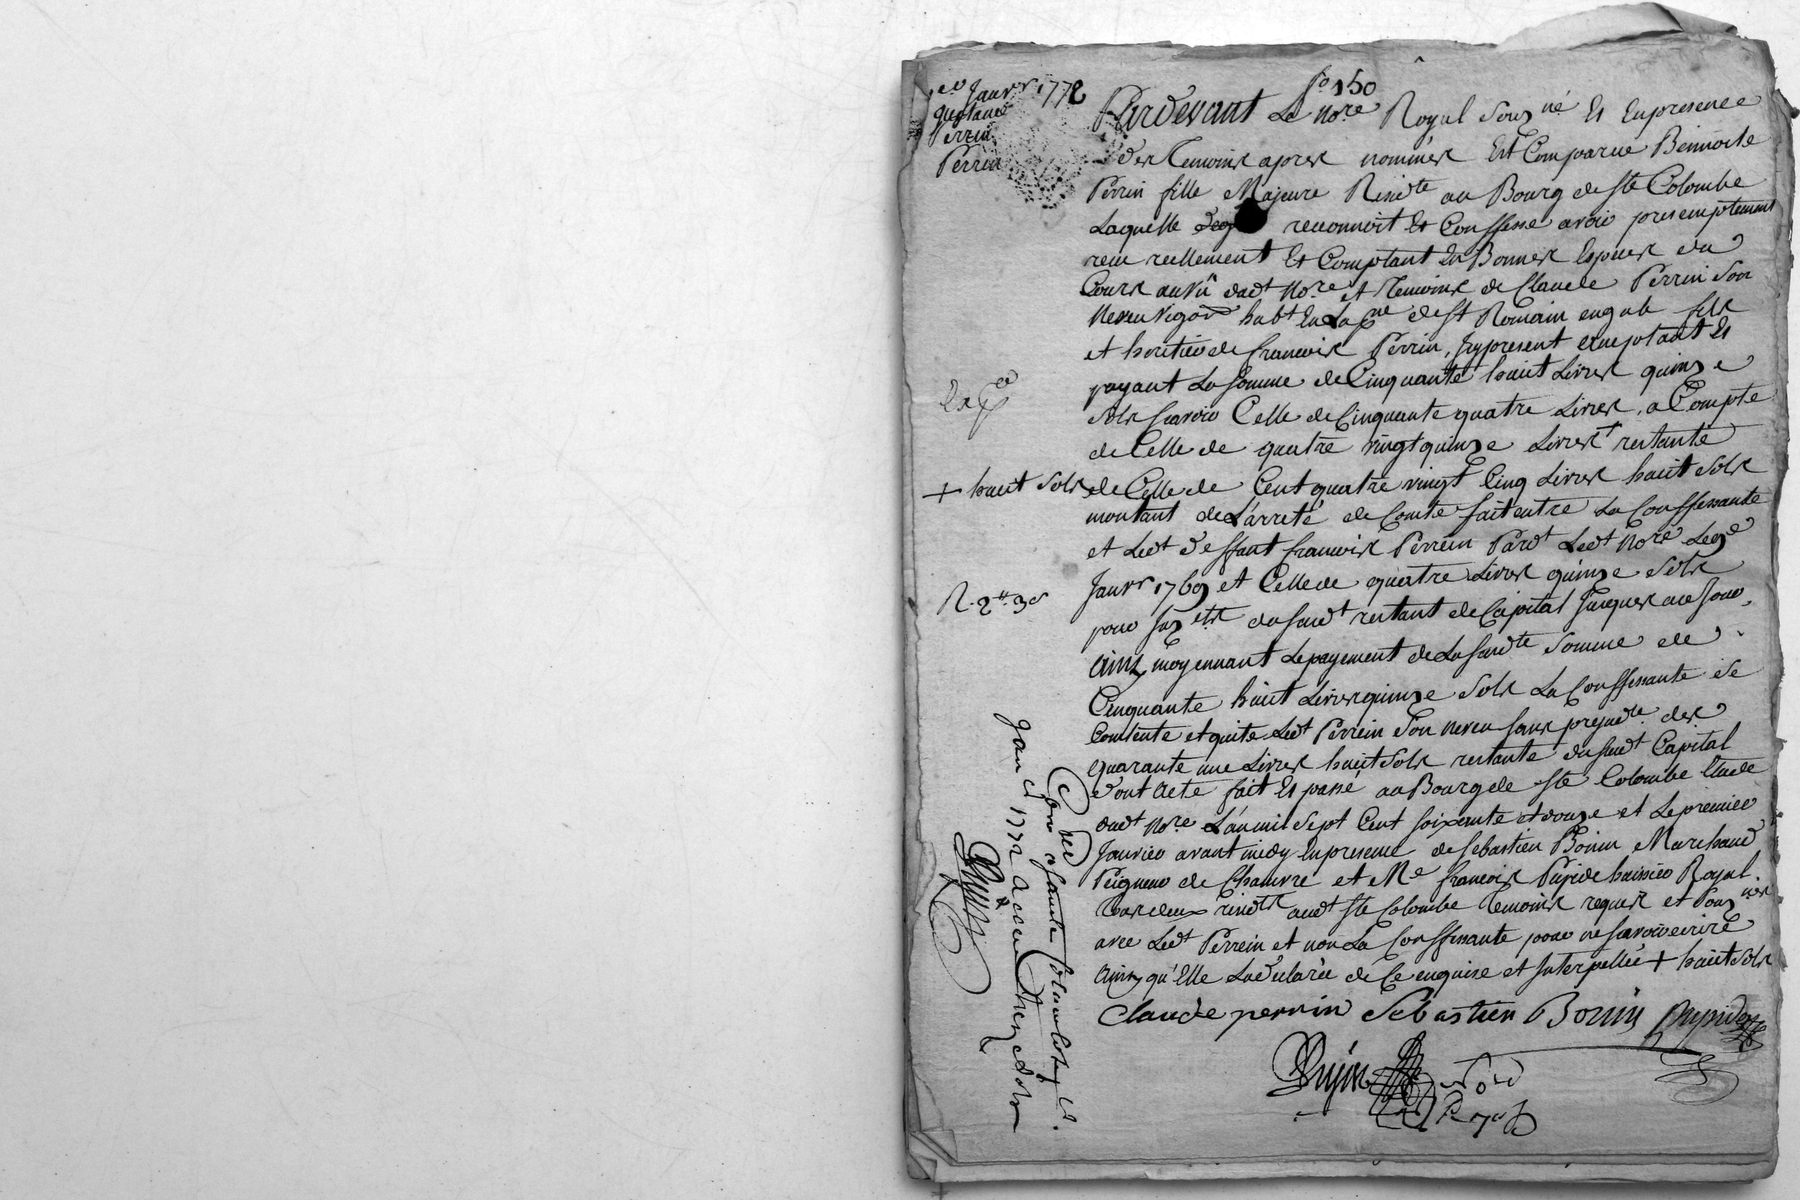 1er Janvr 1772
quittance
Perrin
Perrin
fo 150
Pardevant Le Nore Royal Souzné Et Enpresence
des Temoins apres nommés Est Comparue Benoite
Perrin fille Majeure Residte au Bourg de Ste Colombe
Laquelle reconnoit Et Conffesse avoir presemptement
receu reellement Et Comptant En Bonnes Especes du
Cours au vû dudt Nore et Temoins de Claude Perrin Son
Neveu Vigon habt En La pse de St Romain en gal fils
et heritier de francois Perrin, Jcy present acceptant Et
payant La Somme de Cinquante huit Livres quinze
Sols Scavoir Celle de Cinquante quatre Livres, a Compte
de Celle de quatre vingt quinze Livres + restante
+ huit Sols
de Celle de Cent quatre vingt Cinq Livres huit Sols
montant de L'arreté de Comte fait entre La Conffessante
et Ledt deffunt francois Perrein Pardt Ledt Nore Le 9e
Janvr 1769 et Celle de quatre Livres quinze Sols
R. 2# 3s
pour Jnterts du Susdt restant de Capital Jusques a ce Jour,
Ainsy moyennant Le payement de La Susdte Somme de
Cinquante huit Livres quinze Sols La Conffessante Se
Contente et quite Ledt Perrein Son neveu Sans prejudce des
quarante une Livres huit Sols restante du Susdt Capital
dont Acte fait Et passé au Bourg de Ste Colombe Etude
dudt Nore L'an mil Sept Cent Soixante et douze et Le premier
Janvier avant midy En presence de Sebastien Bonin Marchand
Peigneur de Chanvre et Me francois Pupide huissier Royal
tous deux residts audt Ste Colombe Temoins requis et Souznes
avec Ledt Perrein et non La Conffessante pour ne Scavoir ecrire
Ainsy qu'Elle La declarée de Ce enquise et Jnterpellée + huit Sols
claude perrin Sebastien Bonin
Conllé a Sainte Colombe Ce
Janer 1772